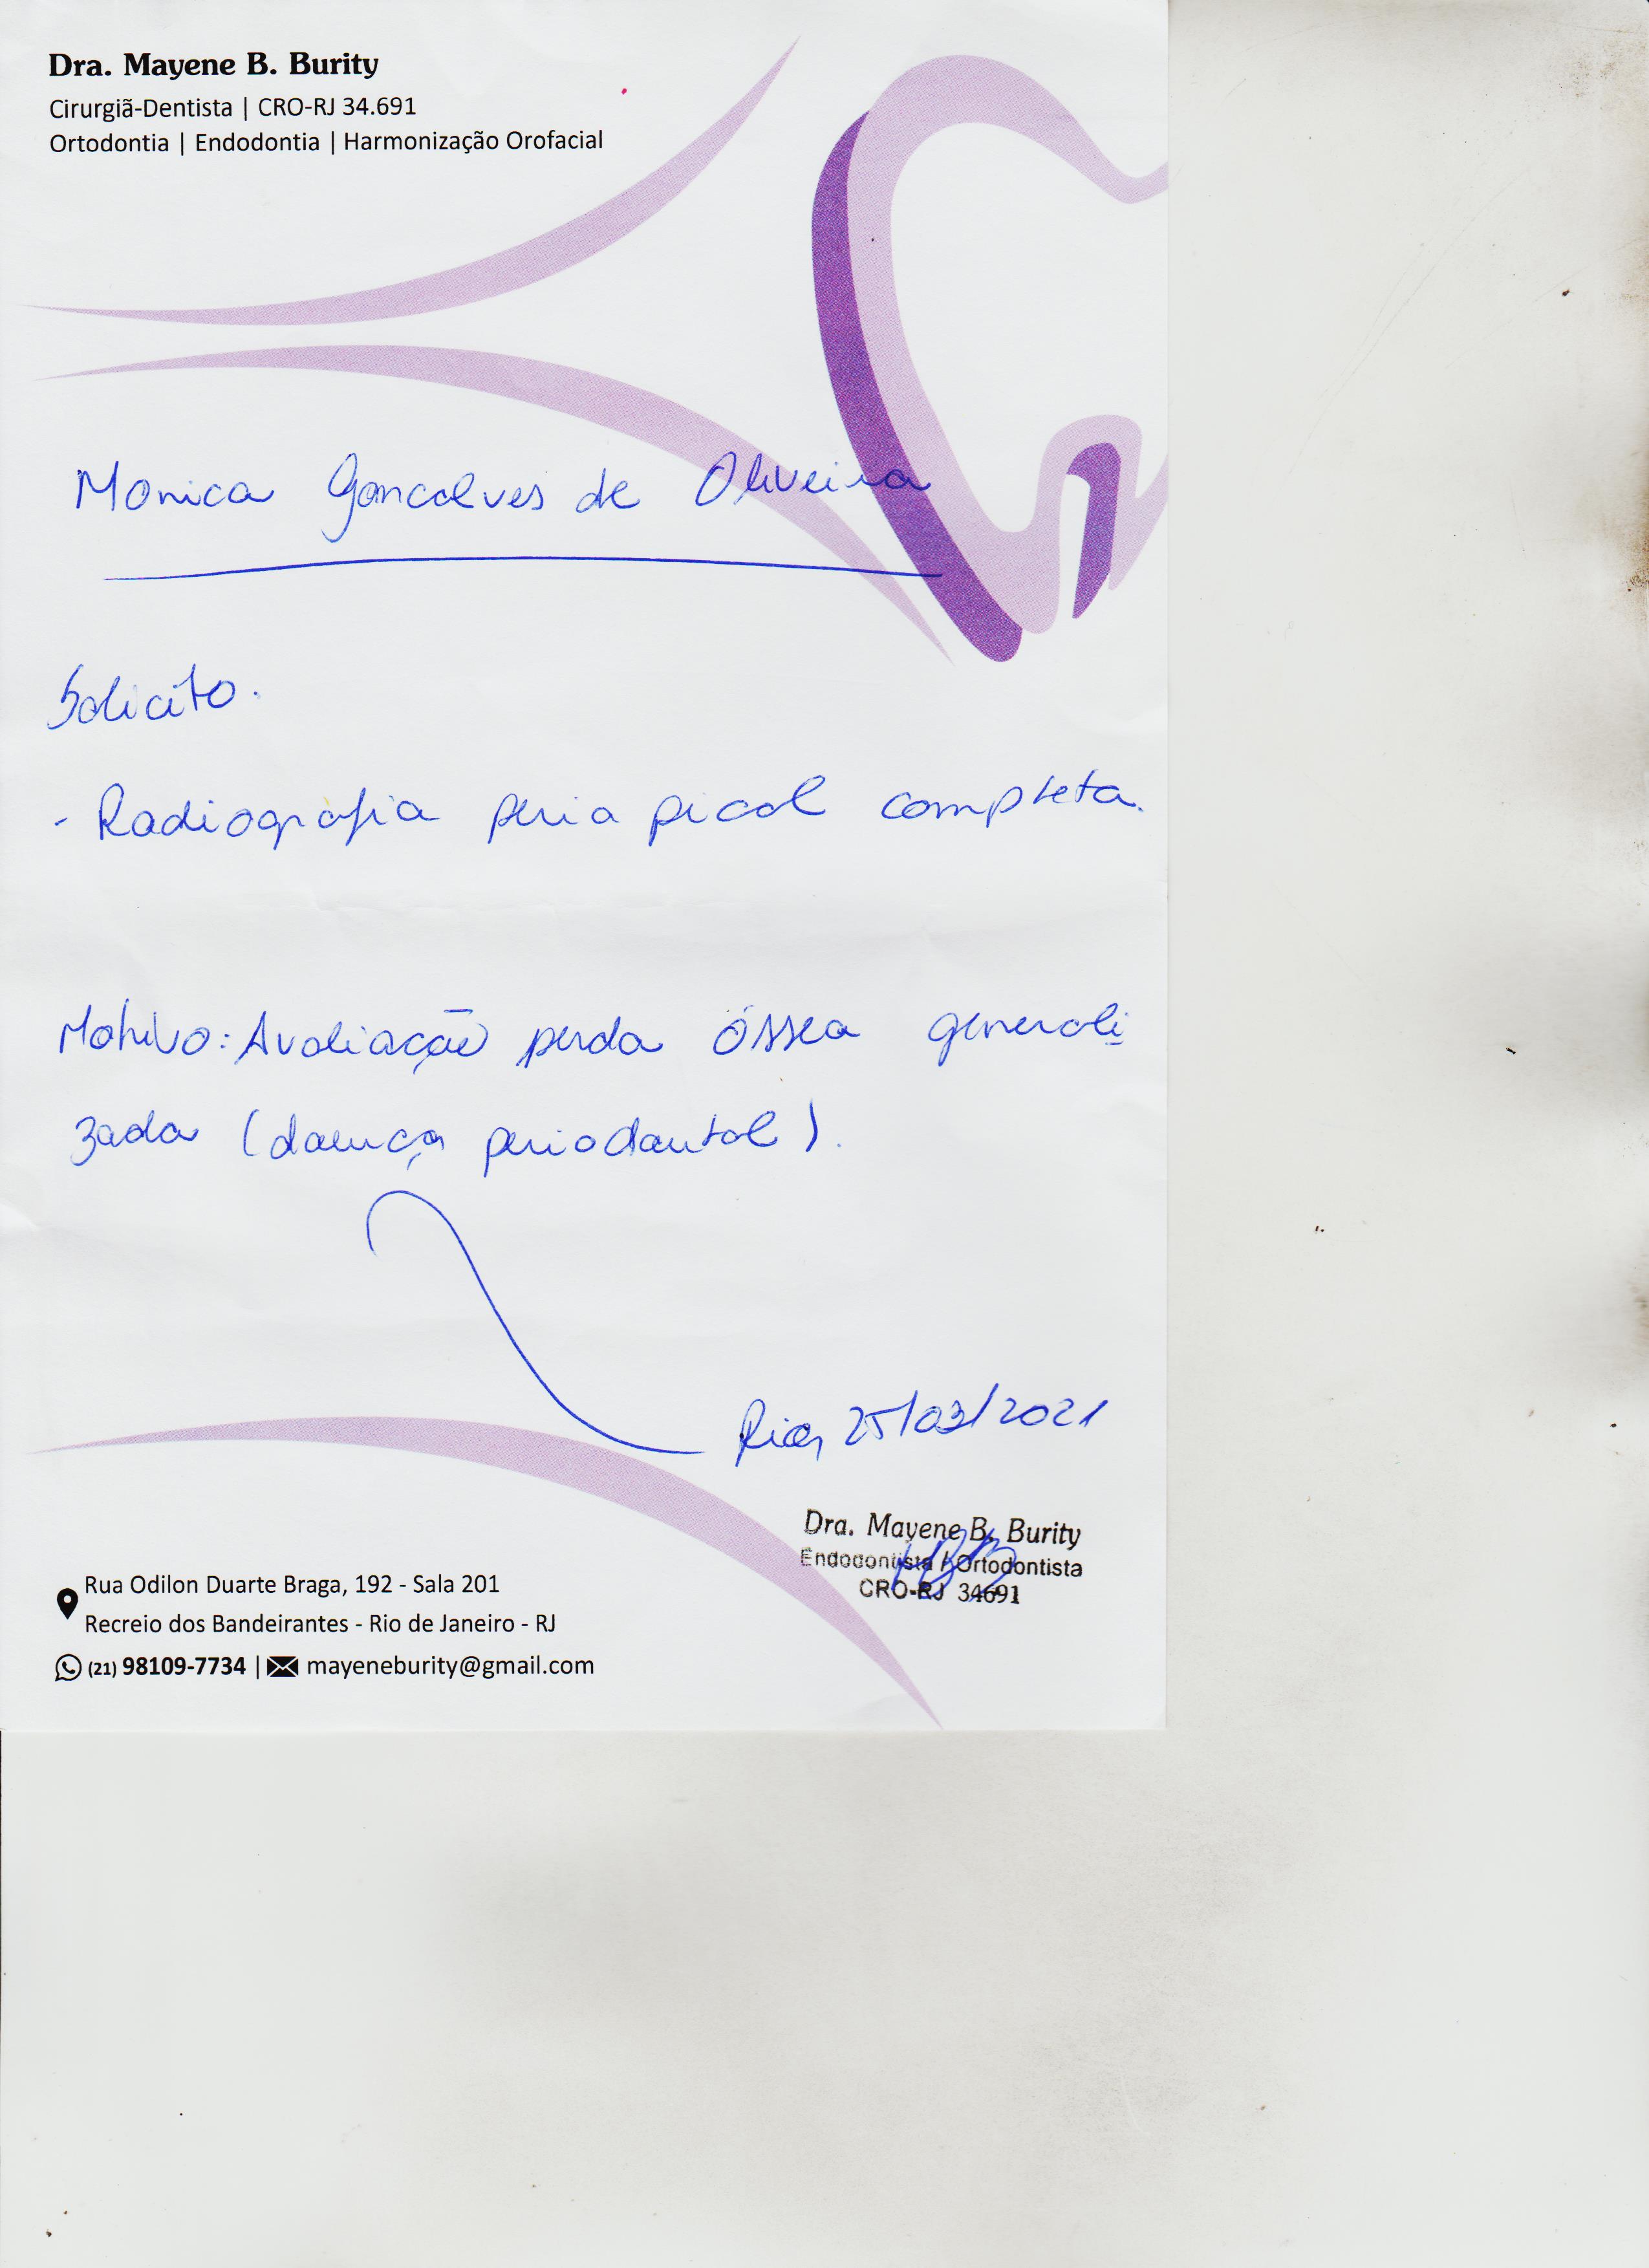 Dra. Mayene B. Burity
Cirurgiã-Dentista | CRO-RJ 34.691
Ortodontia | Endodontia | Harmonização Orofacial
Monica Goncalves de Oliveira
Solicito.
- Radiografia periapical completa.
Motivo: Avaliação perda óssea generali
zada (doença periodontal).
Rio, 25/03/2021
Dra. Mayene B. Burity
Endodontista / Ortodontista
CRO-RJ 34691
Rua Odilon Duarte Braga, 192 - Sala 201
Recreio dos Bandeirantes - Rio de Janeiro - RJ
(21) 98109-7734 | mayeneburity@gmail.com